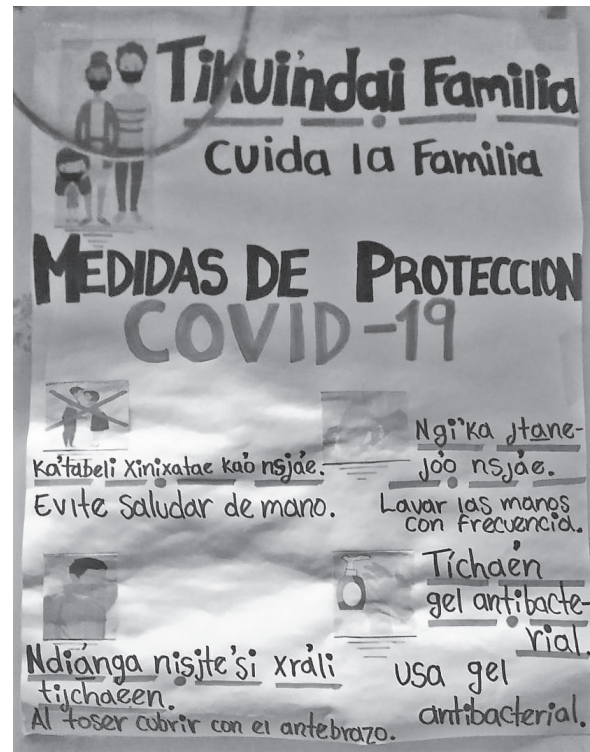 Tikui'ndai Familia
Cuida la Familia
MEDIDAS DE PROTECCION
COVID-19
Ka'tabeli Xinixatae kaò nsjáe.
Evite Saludar de mano.
Ngi'ka jtane-
jòo nsjáe.
Lavar las manos
con frecuencia.
Ndiánga nisjte'si xráli
tijchaeen.
Al toser cubrir con el antebrazo.
Tíchaén
gel antibacte-
rial.
usa gel
antibacterial.